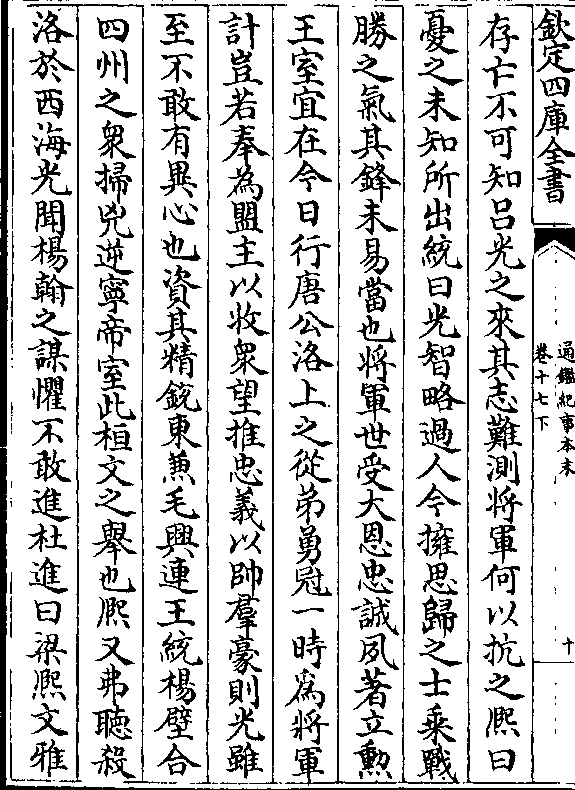 欽定四庫全書
通鑑紀事本末
卷十七下
十
存亡不可知吕光之來其志難測將軍何以抗之熈曰
憂之未知所出統曰光智略過人今擁思歸之士乗戰
勝之氣其鋒未易當也將軍世受大恩忠誠夙著立勲
王室宜在今日行唐公洛上之從弟勇冠一時為將軍
計豈若奉為盟主以收衆望推忠義以帥羣豪則光雖
至不敢有異心也資其精銳東兼毛興連王統楊璧合
四州之衆掃兇逆寧帝室此桓文之舉也熈又弗聽殺
洛於西海光聞楊翰之謀懼不敢進杜進曰梁熈文雅